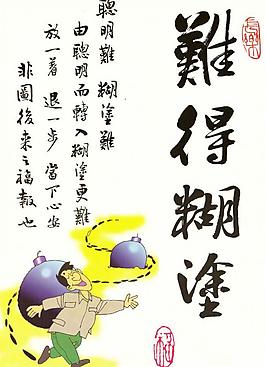 難得糊塗
聰明難 糊塗難
由聰明而轉入糊塗更難
放一着 退一步 當下心安
非圖後来之福報也